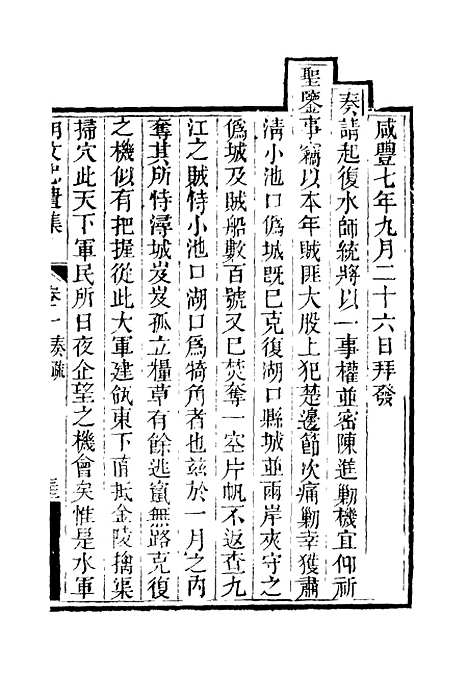 咸豐七年九月二十六日拜發
奏請起復水師統將以一事權並密陳進勦機宜仰祈
聖鑒事竊以本年賊匪大股上犯楚邊節次痛勦幸獲肅
清小池口僞城既已克復湖口縣城並兩岸夾守之
僞城及賊船數百號又已焚奪一空片帆不返查九
江之賊恃小池口湖口爲犄角者也茲於一月之內
奪其所恃潯城岌岌孤立糧草有餘逃竄無路克復
之機似有把握從此大軍建瓴東下直抵金陵擒渠
掃穴此天下軍民所日夜企望之機會矣惟是水軍
胡文忠遺集
卷一奏疏